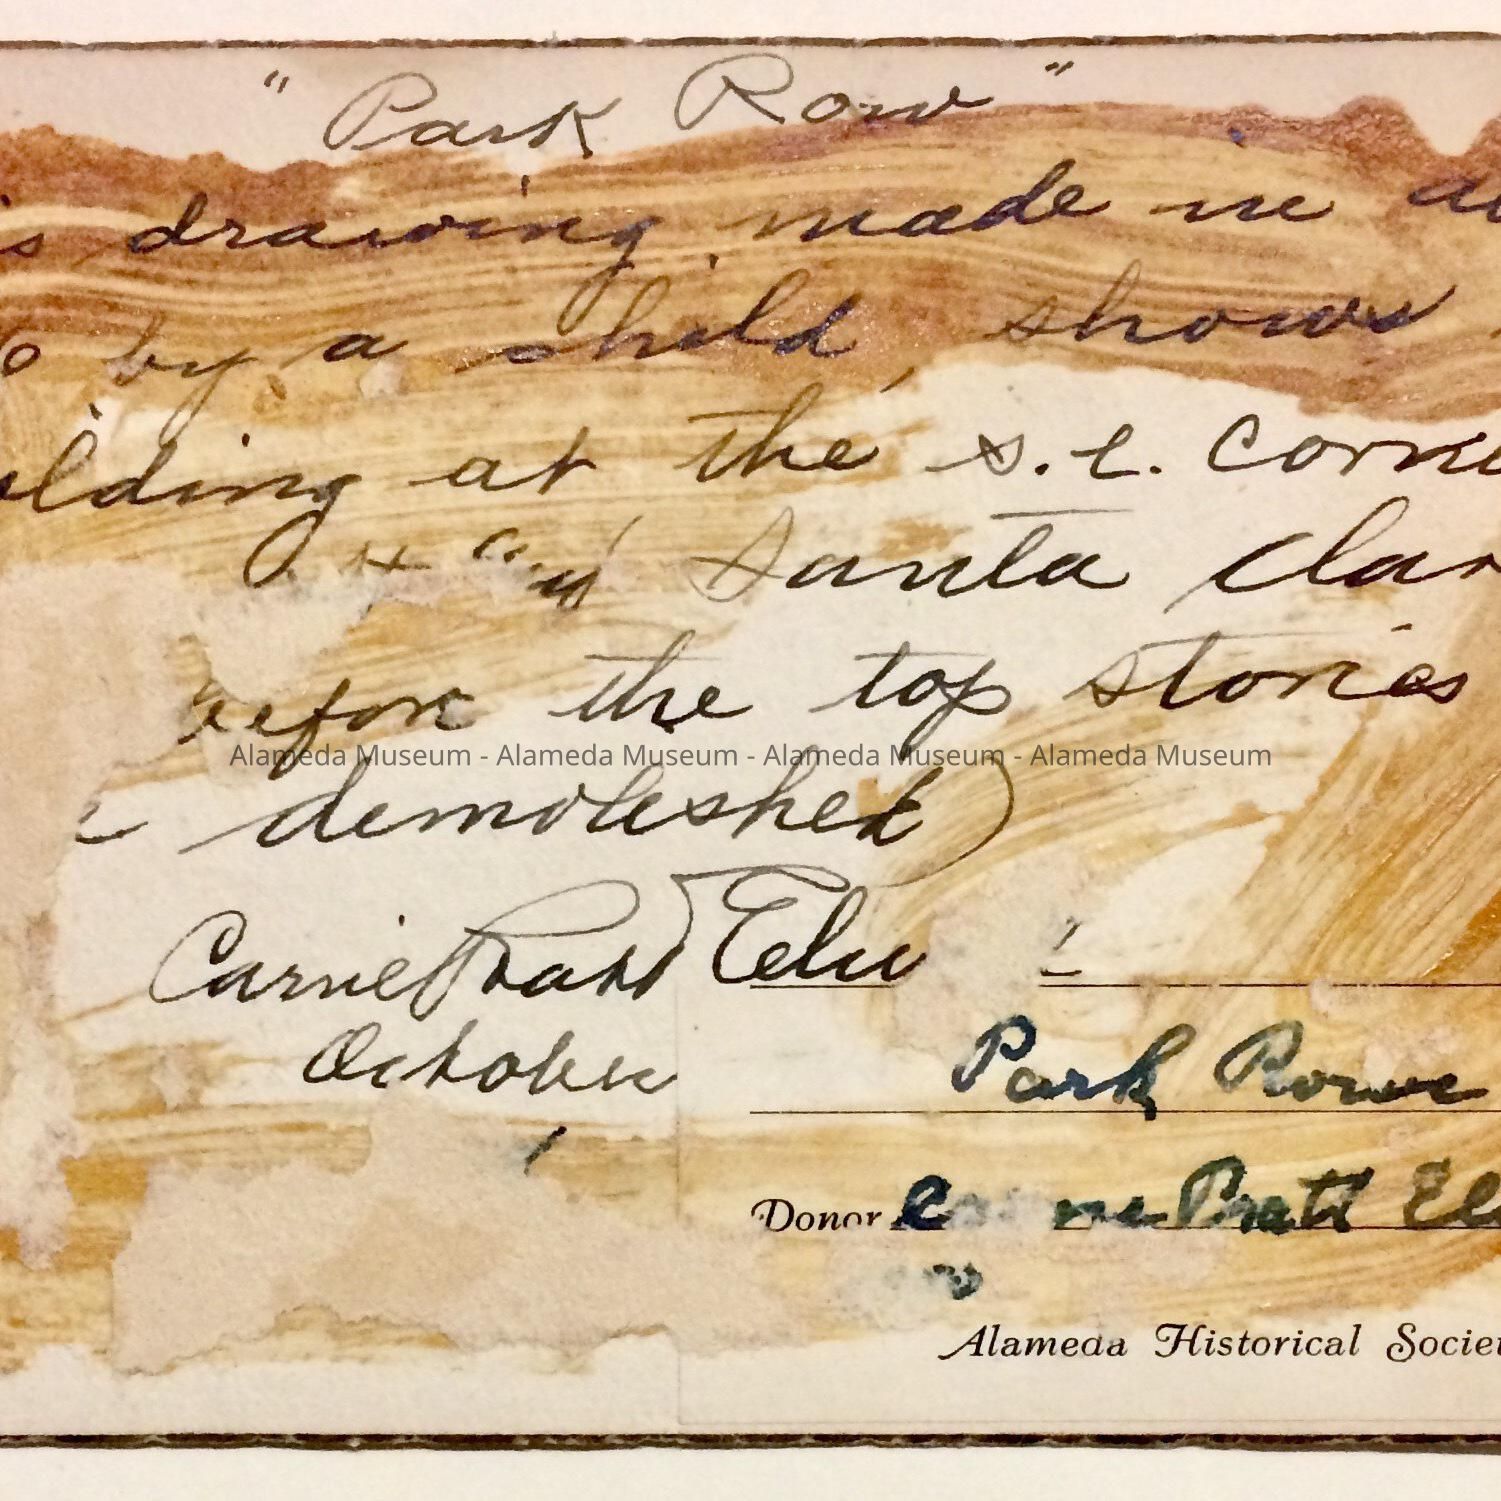 "Park Row"
is drawing made in
by a child, shows
lding at the s.e. Corne
Santa Clar
before the top stories
Alameda Museum - Alameda Museum - Alameda Museum - Alameda Museum
demolished)
Carrie Pratt Elu
October
Park Rowe
Donor Carrie Pratt El
Alameda Historical Societ